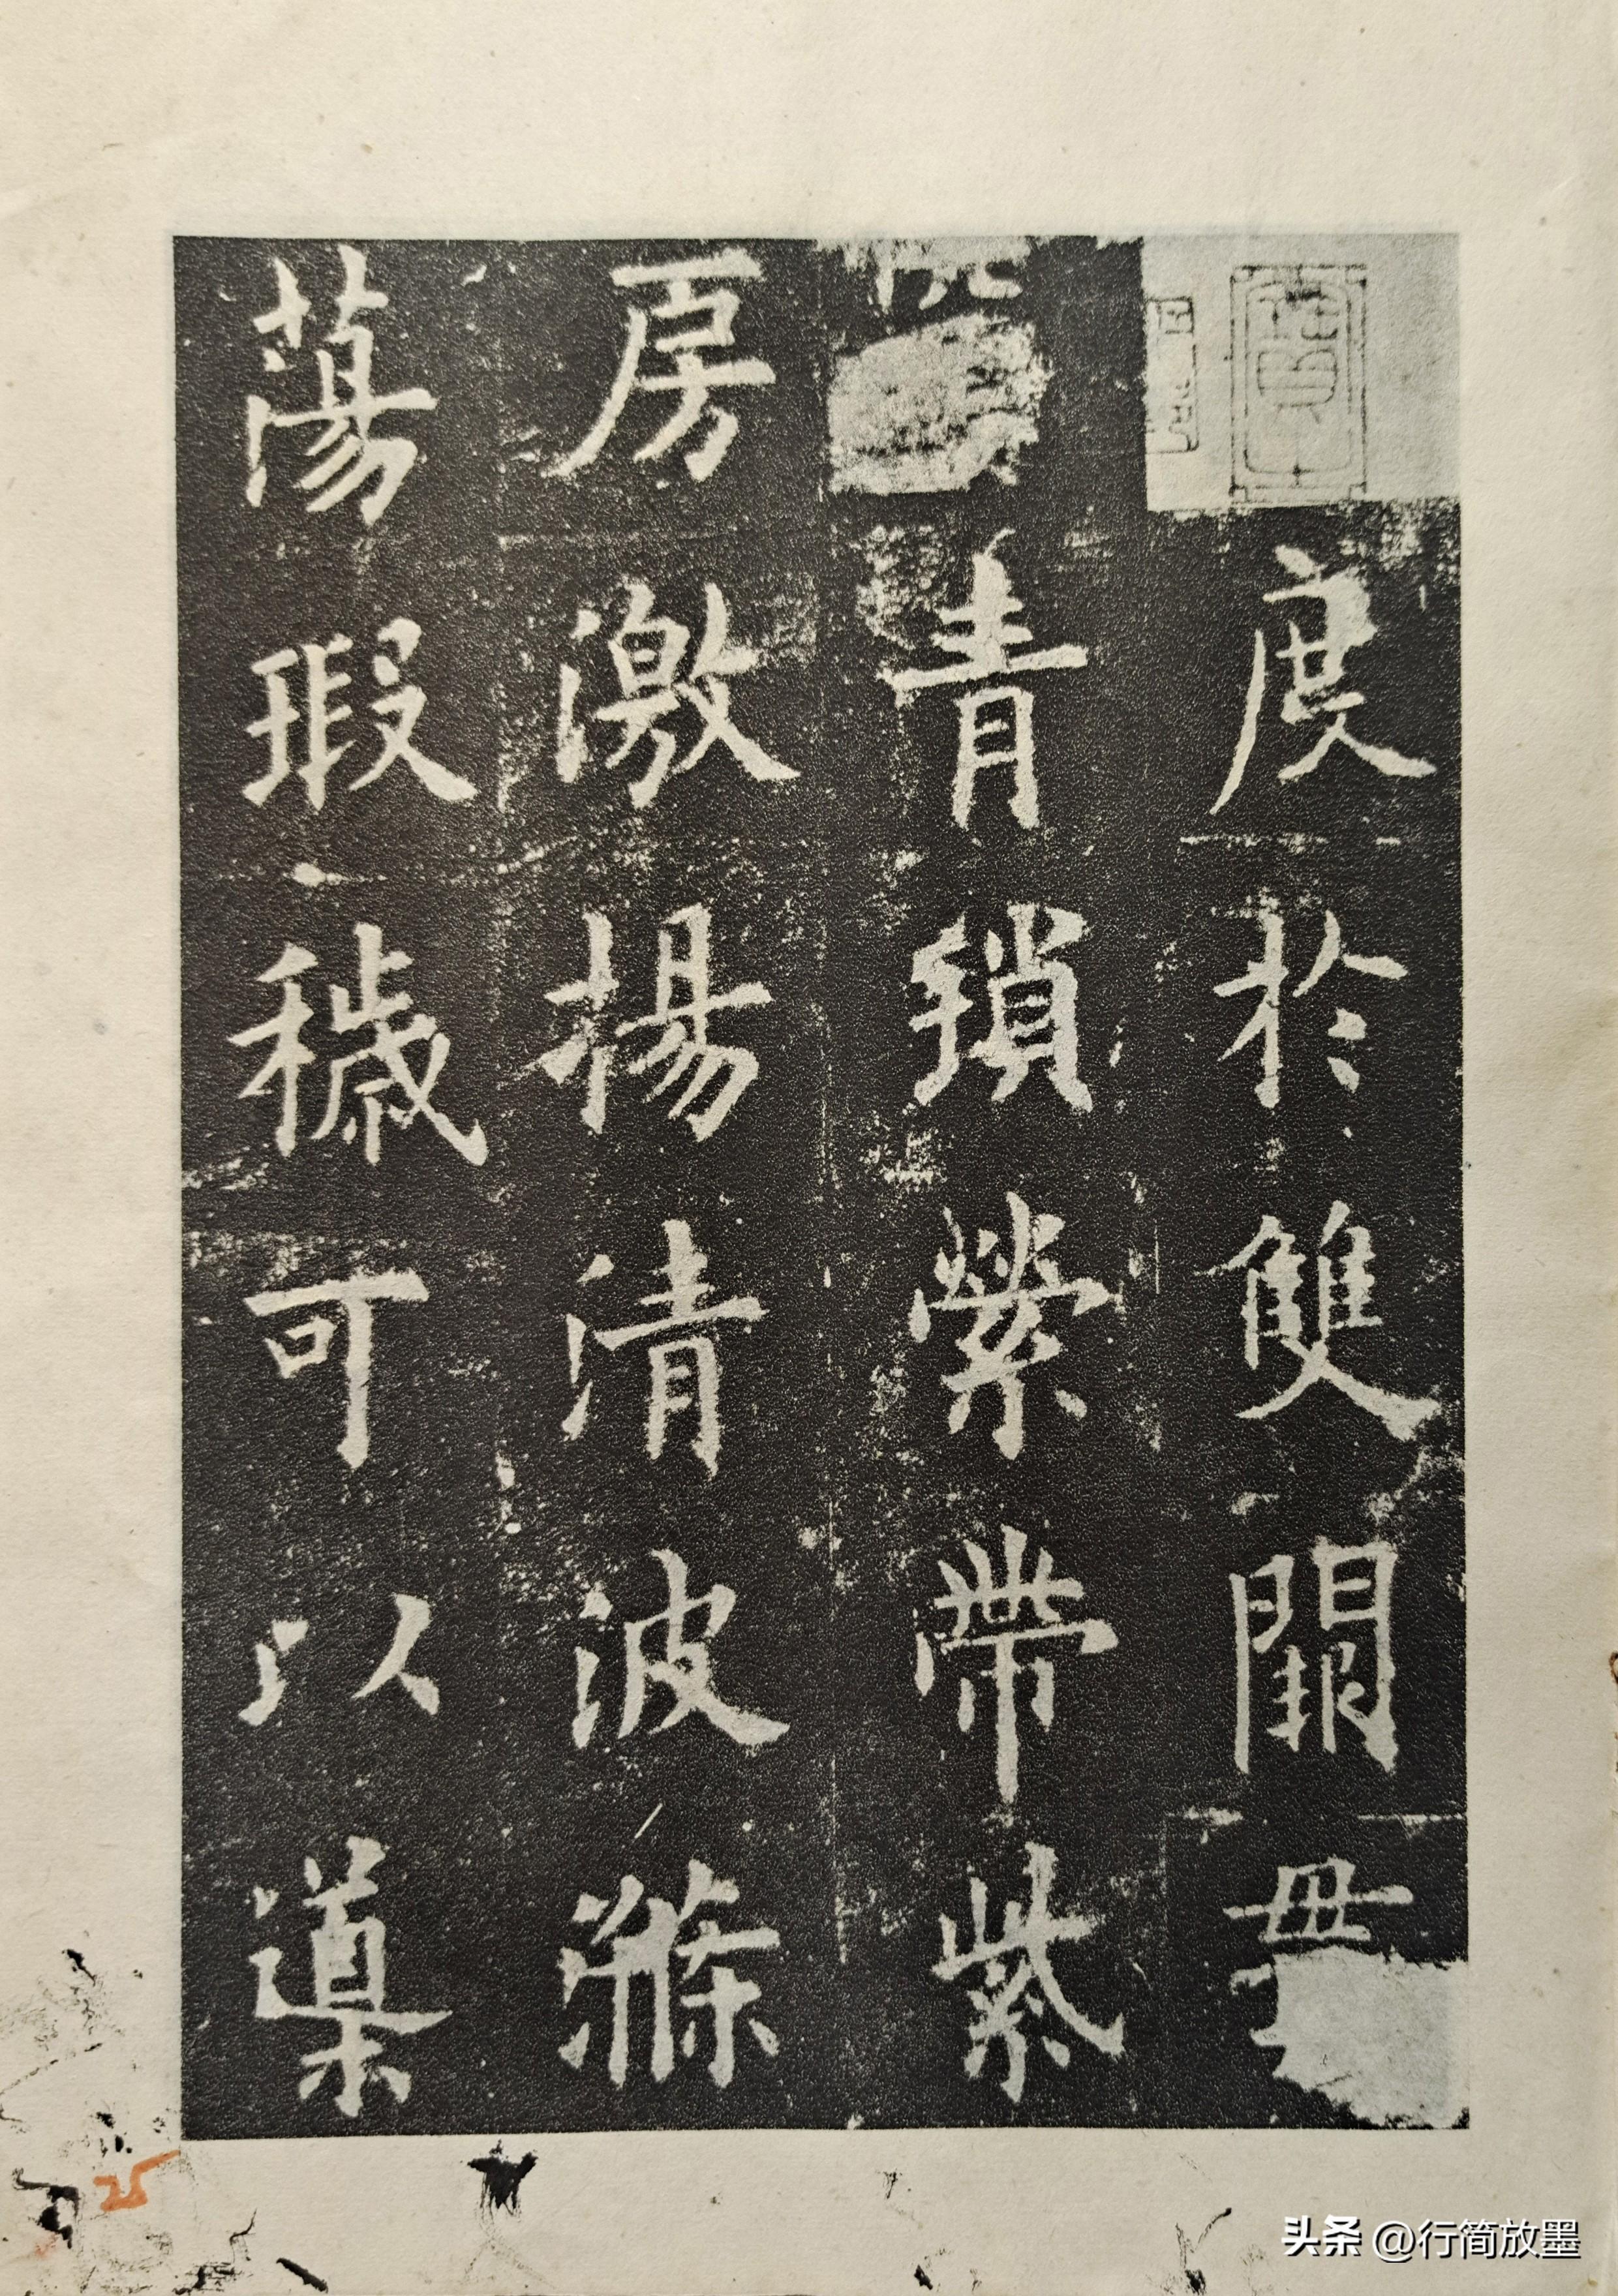 度於雙闕
青鎖縈帶紫
房激揚清波滌
蕩瑕穢可以導
25
头条 @行简放墨